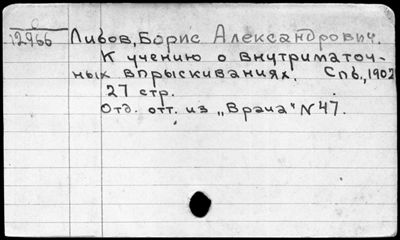 12966 Либов, Борис Александрович.
К учению о внутриматоч-
ных впрыскиваниях. Спб., 1902
27 стр.
Отд. отт. из „Врача“ N 47.